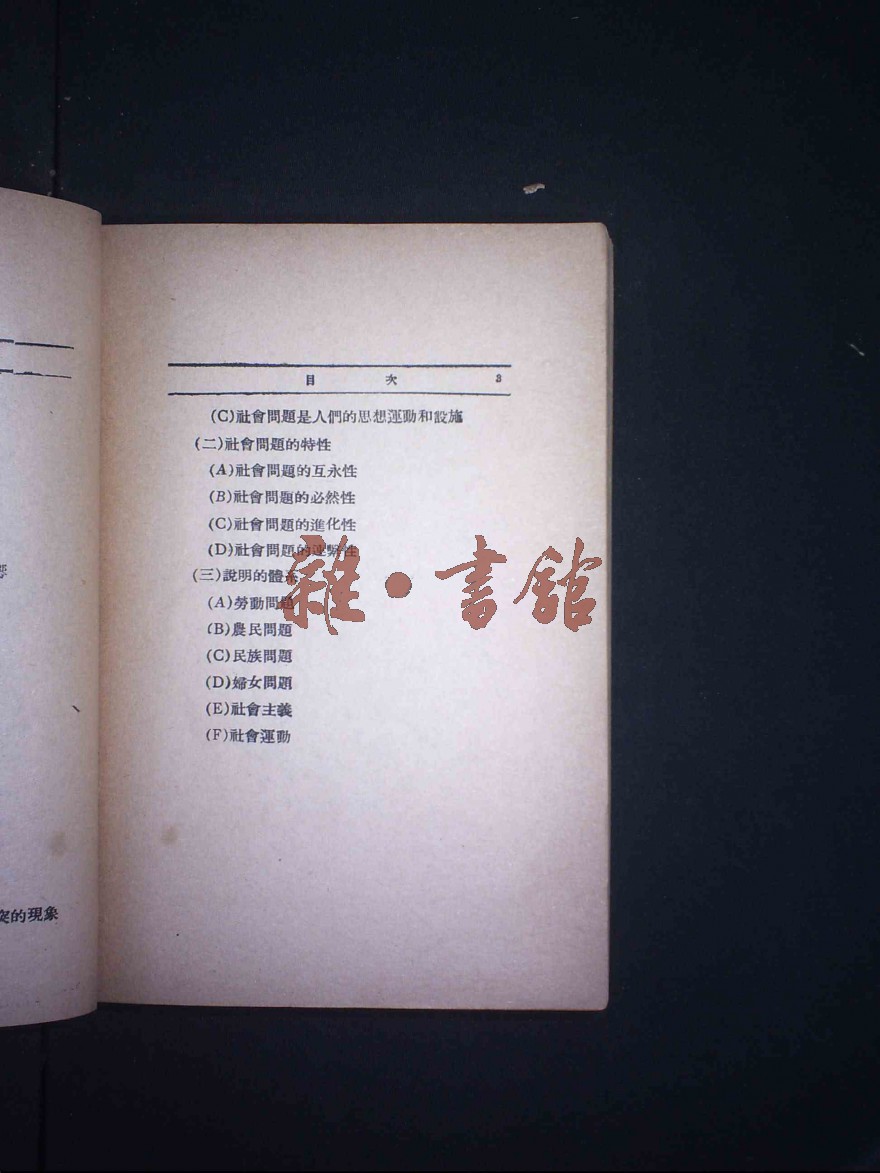 目次 3
(C)社會問題是人們的思想運動和設施
(二)社會問題的特性
(A)社會問題的互永性
(B)社會問題的必然性
(C)社會問題的進化性
(D)社會問題的連繫性
(三)說明的體系
(A)勞動問題
(B)農民問題
(C)民族問題
(D)婦女問題
(E)社會主義
(F)社會運動
雜·書館
突的現象